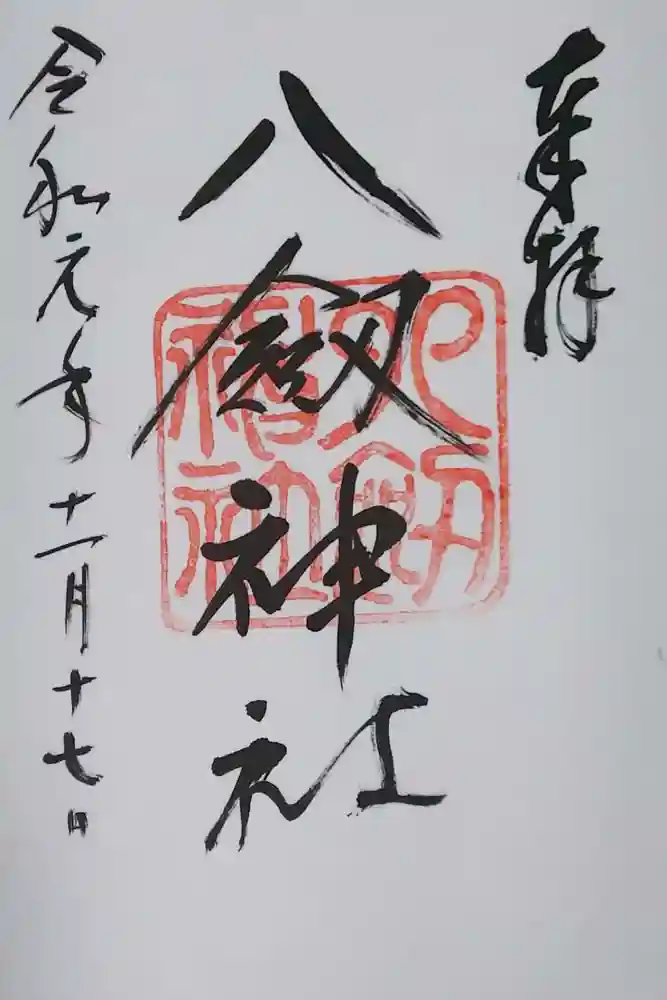 奉拝
八劔神社
八劔神社
令和元年十一月十七日